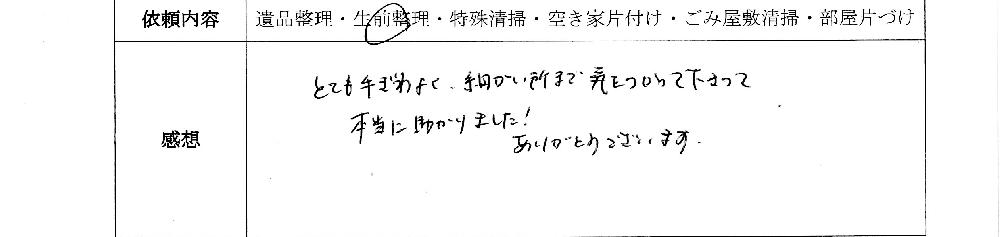 依頼内容 遺品整理・生前整理・特殊清掃・空き家片付け・ごみ屋敷清掃・部屋片づけ
感想
とても手ぎわよく、細かい所まで気をつかって下さって
本当に助かりました!
ありがとうございます.